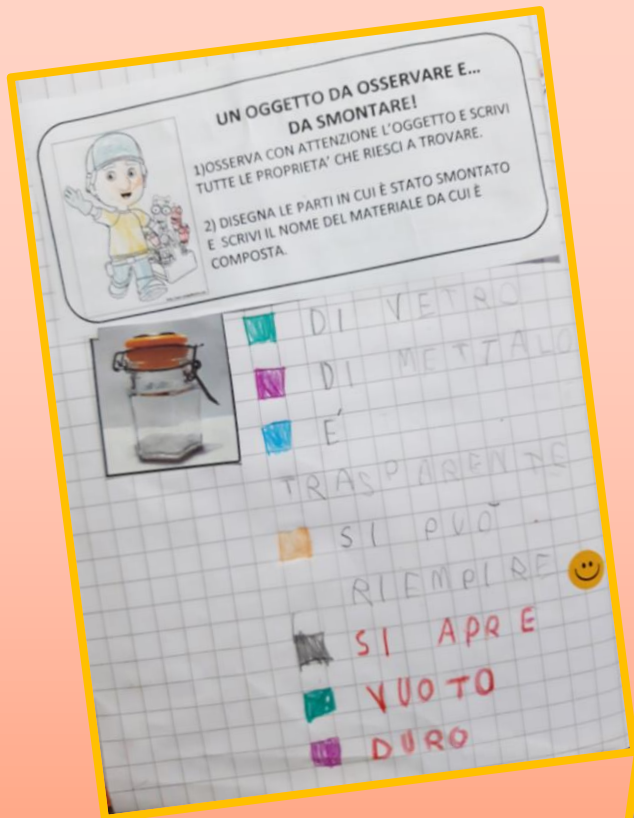 UN OGGETTO DA OSSERVARE E...
DA SMONTARE!
1)OSSERVA CON ATTENZIONE L'OGGETTO E SCRIVI
TUTTE LE PROPRIETA' CHE RIESCI A TROVARE.
2) DISEGNA LE PARTI IN CUI È STATO SMONTATO
E SCRIVI IL NOME DEL MATERIALE DA CUI È
COMPOSTA.
DI VETRO
DI METTALO
É
TRASPARENTE
SI PUÒ
RIEMPIRE
SI APRE
VUOTO
DURO